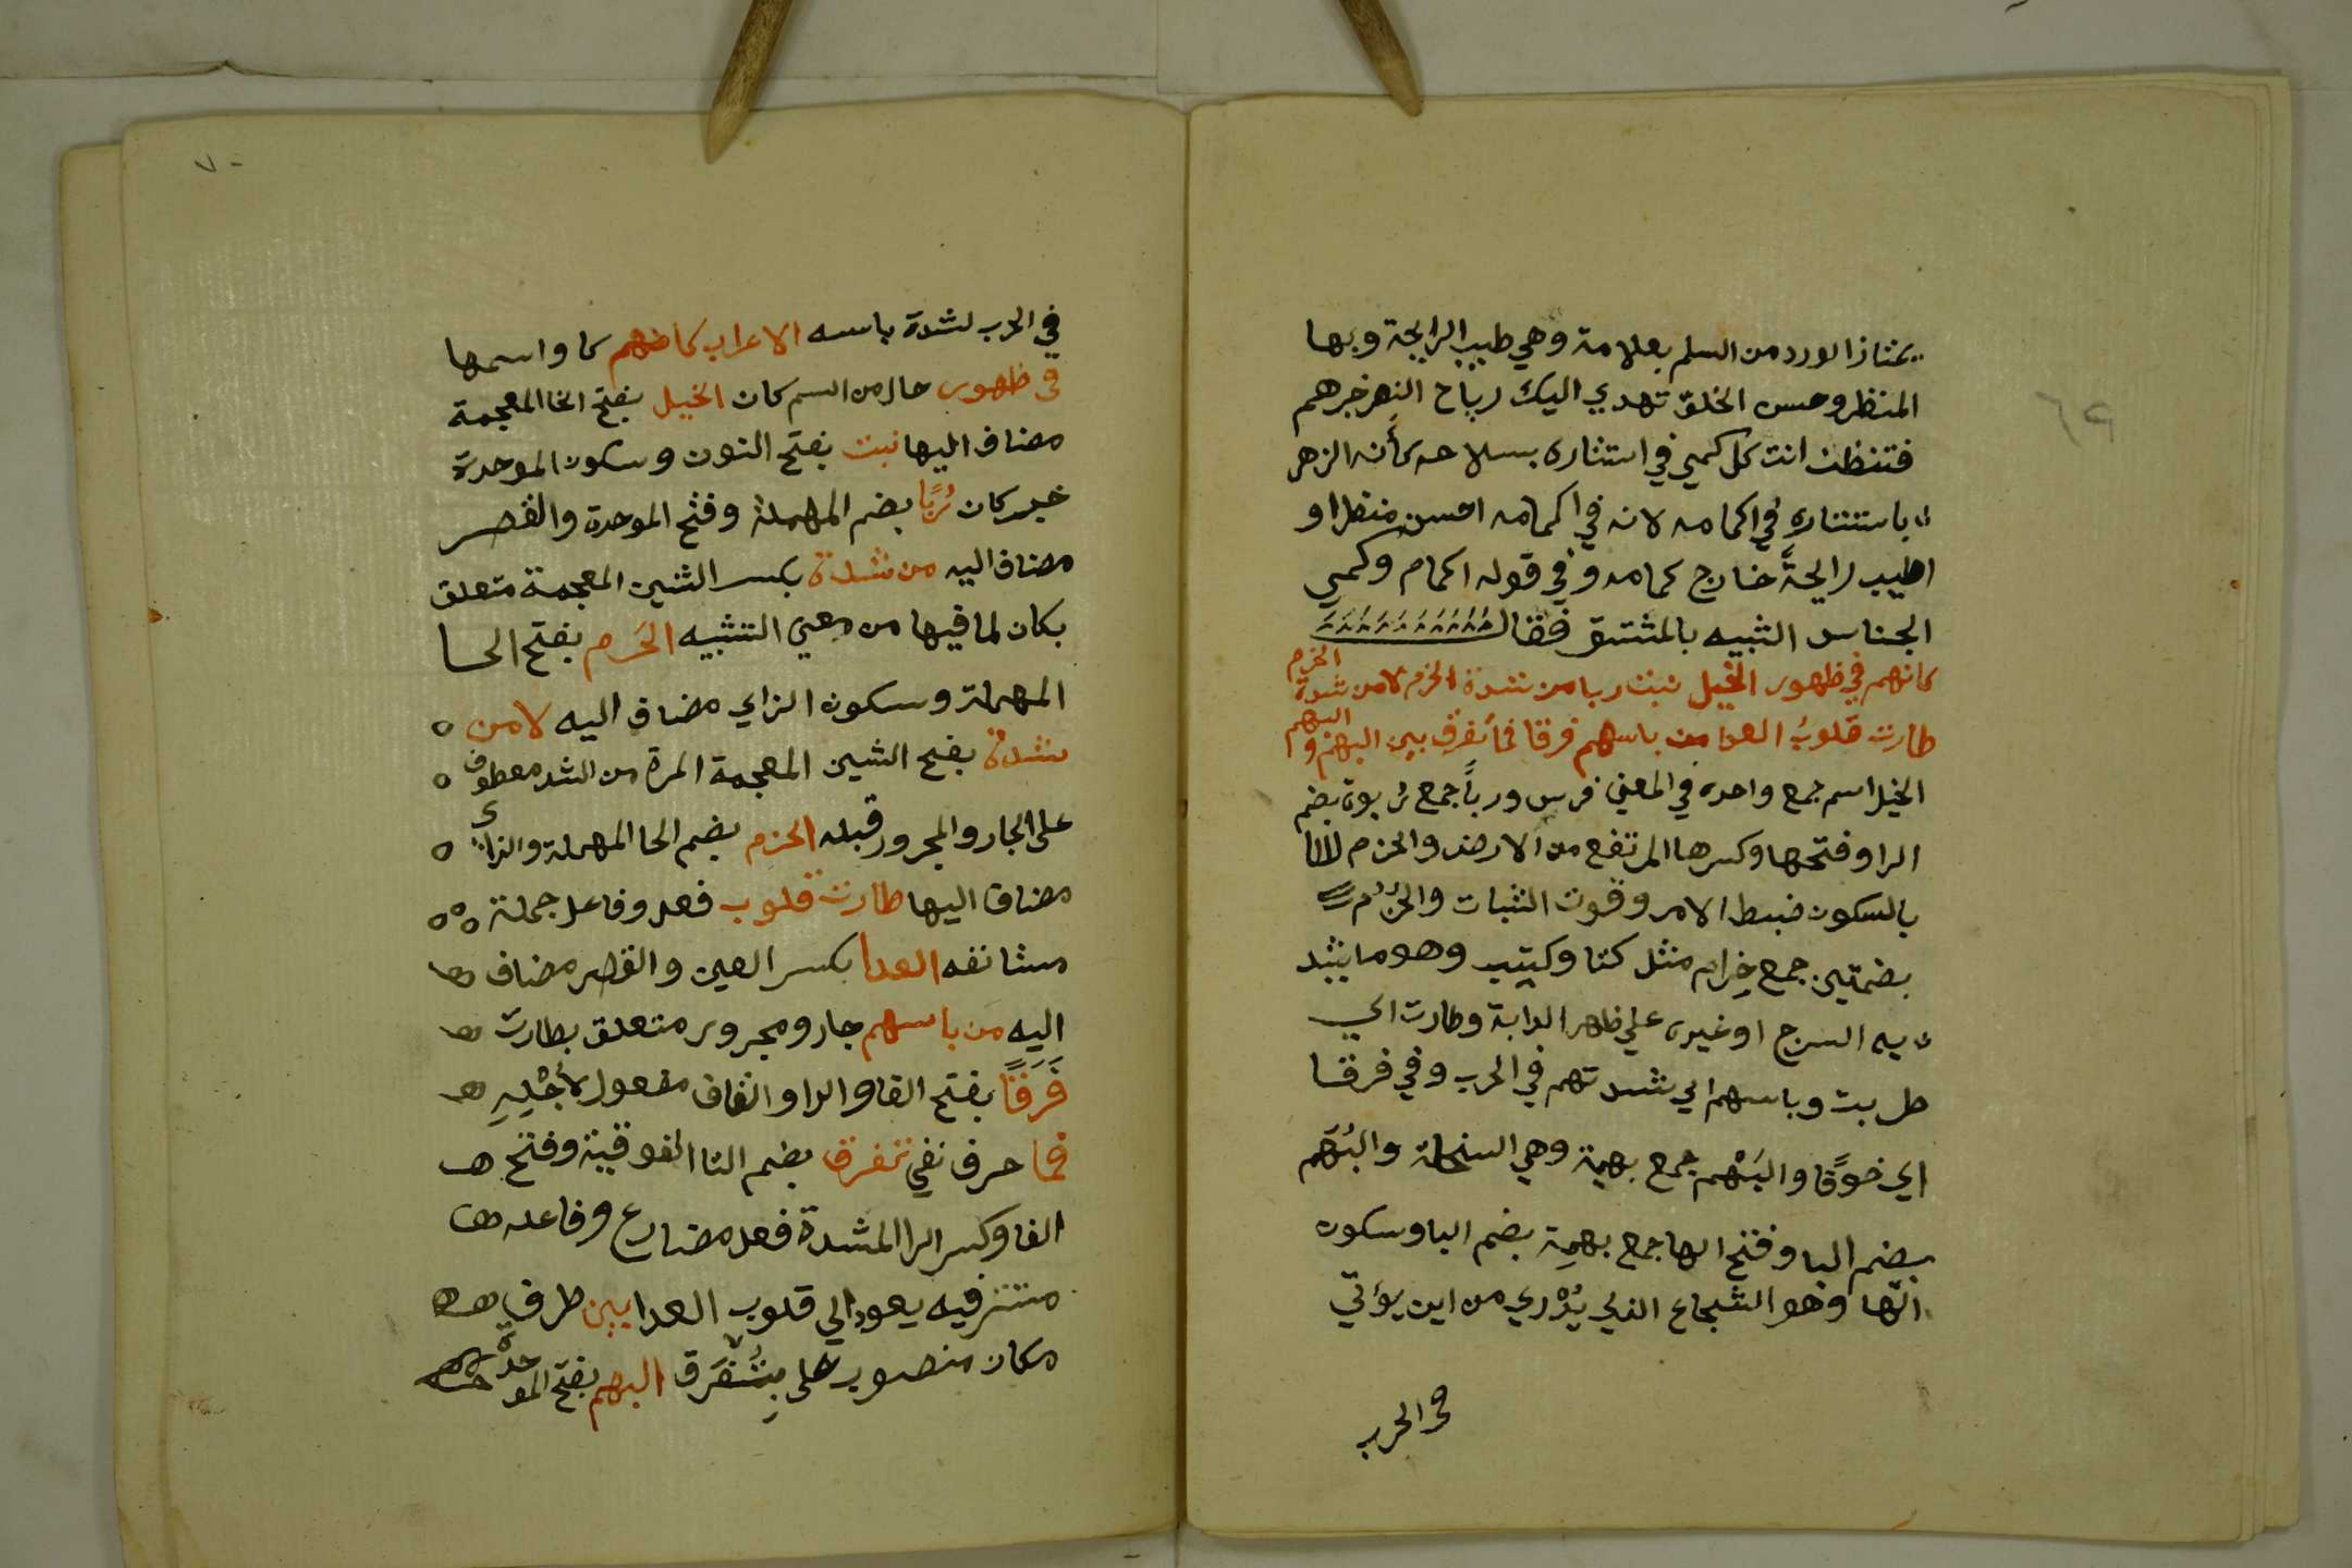 يمتاز الورد من السلم بعلامة وهي طيب الرايحة وبها
المنظر وحسن الخلق تهدي اليك رياح النصر خبرهم
فتنظن انت كل كمي في استثاره بسلاحه كأنه الزهر
باستتاره في اكمامه لانه في اكمامه احسن منظرا و
اطيب رايحةً خارج كمامه وفي قوله اكمام وكمي
الجناس الشبيه بالمشتق فقال
كانهم في ظهور الخيل نبت ربا من شدة الحزم لا من شدة الحزم
طارت قلوبُ العدا من باسهم فرقا فما تُفرق بين البهم و البهم
الخيل اسم جمع واحده في المعنى فرس ورباً جمع رُبوة بضم
الرا وفتحها وكسرها المرتفع من الارض والحزم
بالسكون ضبط الامر وقوت الثبات والحُزُم
بضمتين جمع حِزام مثل كتا وكتب وهو ما يشد
به السرج او غيره علي ظهر الدابة وطارت اي
طربت وباسهم اي شدتهم في الحرب وفي فرقا
اي خوفًا والبَهْم جمع بهيمة وهي السخلة والبُهَم
بضم البا وفتح الها جمع بهمِة بضم البا وسكون
الها وهو الشجاع الذي يُدْري من اين يؤتي
في الحرب
٦٩
٧٠
في الحرب لشدة باسه الاعراب كانهم كا واسمها
في ظهور حال من اسم كان الخيل بفتح الخا المعجمة
مضاف اليها نبت بفتح النون وسكون الموحدة
خبر كان رُبًا بضم المهملة وفتح الموحدة والقصر
مضاف اليه من شدة بكسر الشين المعجمة متعلق
بكان لما فيها من معني التشبيه الحَزم بفتح الحا
المهملة وسكون الزاي مضاف اليه لا من
شدة بفتح الشين المعجمة المرة من الشد معطوف
على الجار والمجرور قبله الحزم بضم الحا المهملة والزاي
مضاف اليها طارت قلوب فعل وفاعل جملة
مستانفه العدا بكسر العين والقصر مضاف
اليه من باسهم جار ومجرور متعلق بطارت
فَرَقًا بفتح الفا والرا والقاف مفعول لأجْلِهِ
فما حرف نفي تفرق بضم التا الفوقية وفتح
الفا وكسر الرا المشدة فعل مضارع وفاعله
مستتر فيه يعود الي قلوب العدا بين طرف
مكان منصوب على بتُفَرق البهم بفتح الموحدة